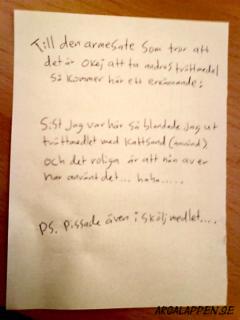 Till den armesate som tror att
det är okej att ta andras tvättmedel
så kommer här ett erkännande:
Sist jag var här så blandade jag ut
tvättmedlet med kattsand (använd)
och det roliga är att nån av er
har använt det.... haha.....
PS. Pissade även i sköljmedlet....
ARGALAPPEN.SE